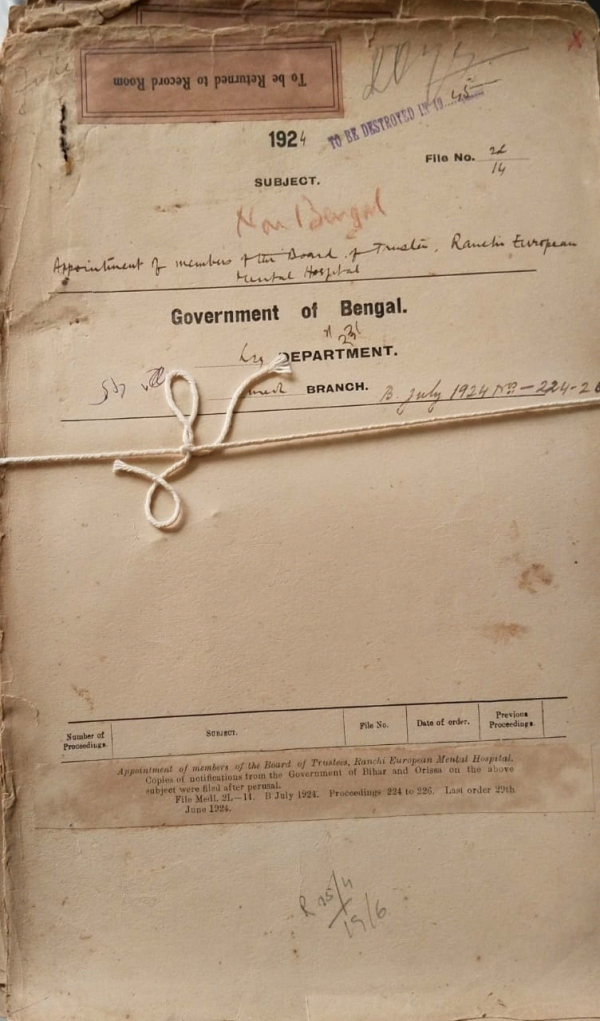 To be Returned to Record Room
TO BE DESTROYED IN 19 45
1924
File No.
14
SUBJECT.
Non Bengal
Appointment of members of the Board of Trustees, Ranchi European
Mental Hospital
Government of Bengal.
DEPARTMENT.
BRANCH. B July 1924 Nos - 224-26
Number of Proceedings.
SUBJECT.
File No.
Date of order.
Previous Proceedings.
Appointment of members of the Board of Trustees, Ranchi European Mental Hospital.
Copies of notifications from the Government of Bihar and Orissa on the above
subject were filed after perusal.
File Medl. 2L—14. B July 1924. Proceedings 224 to 226. Last order 29th
June 1924.
R 25/4
19/6